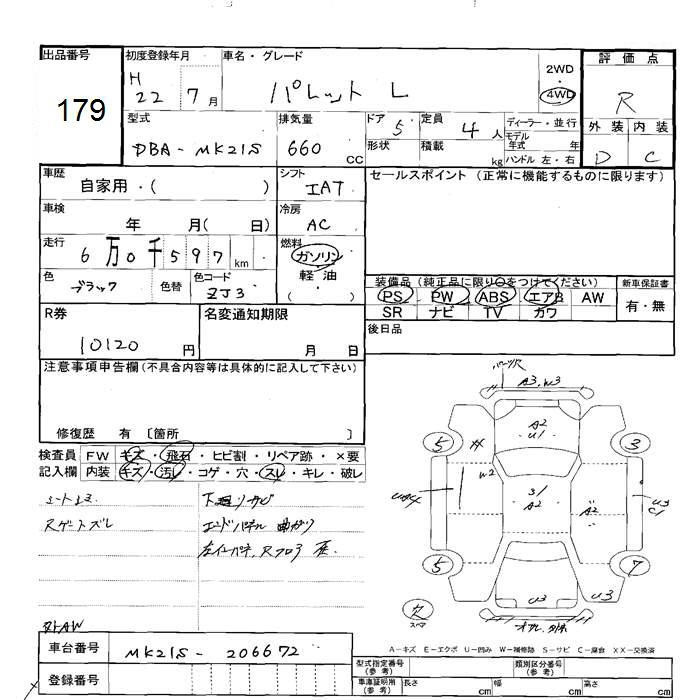 出品番号
179
初度登録年月
H
22 7月
車名・グレード
パレット L
2WD
・
4WD
評価点
R
外装 内装
D C
型式
DBA-MK21S
排気量
660 CC
ドア 5
形状
定員 4 人
積載 kg
ディーラー・並行
モデル
年式 年
ハンドル 左・右
車歴
自家用・( )
シフト
IAT
セールスポイント(正常に機能するものに限ります)
車検
年 月( 日)
冷房
AC
走行
6万0千597km
燃料
ガソリン
軽油
( )
色
ブラック
色替
色コード
ZJ3
装備品(純正品に限り○をつけてください)
PS PW ABS エアB AW
SR ナビ TV カワ
新車保証書
有・無
R券
10120 円
名変通知期限
月 日
後日品
注意事項申告欄(不具合内容等は具体的に記入して下さい)
修復歴 有 〔箇所 〕
検査員 FW キズ・飛石・ヒビ割・リペア跡・×要
記入欄 内装 キズ・汚レ・コゲ・穴・スレ・キレ・破レ
下廻りサビ
エンドパネル曲がり
車台番号
MK21S-206672
登録番号
A3.W3
A2
U1
5
3
W2
S/
A2
U3
C1
5
7
U3
U3
A-キズ E-エクボ U-凹み W-補修跡 S-サビ C-腐食 XX-交換済
型式指定番号
(参考)
類別区分番号
(参考)
車庫証明用
(参考)
長さ cm
幅 cm
高さ cm